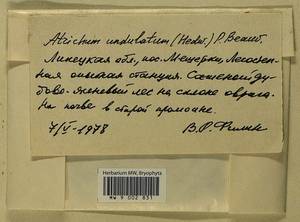 Atrichum undulatum (Hedw.) P. Beauv.
Липецкая обл., пос. Мещерка, Лесостеп-
ная опытная станция. Саженый ду-
бово-ясеневый лес на склоне оврага.
На почве в старой промоине.
7/V-1978 В.Р. Филин
Herbarium MW, Bryophyta
MW 9 002 831